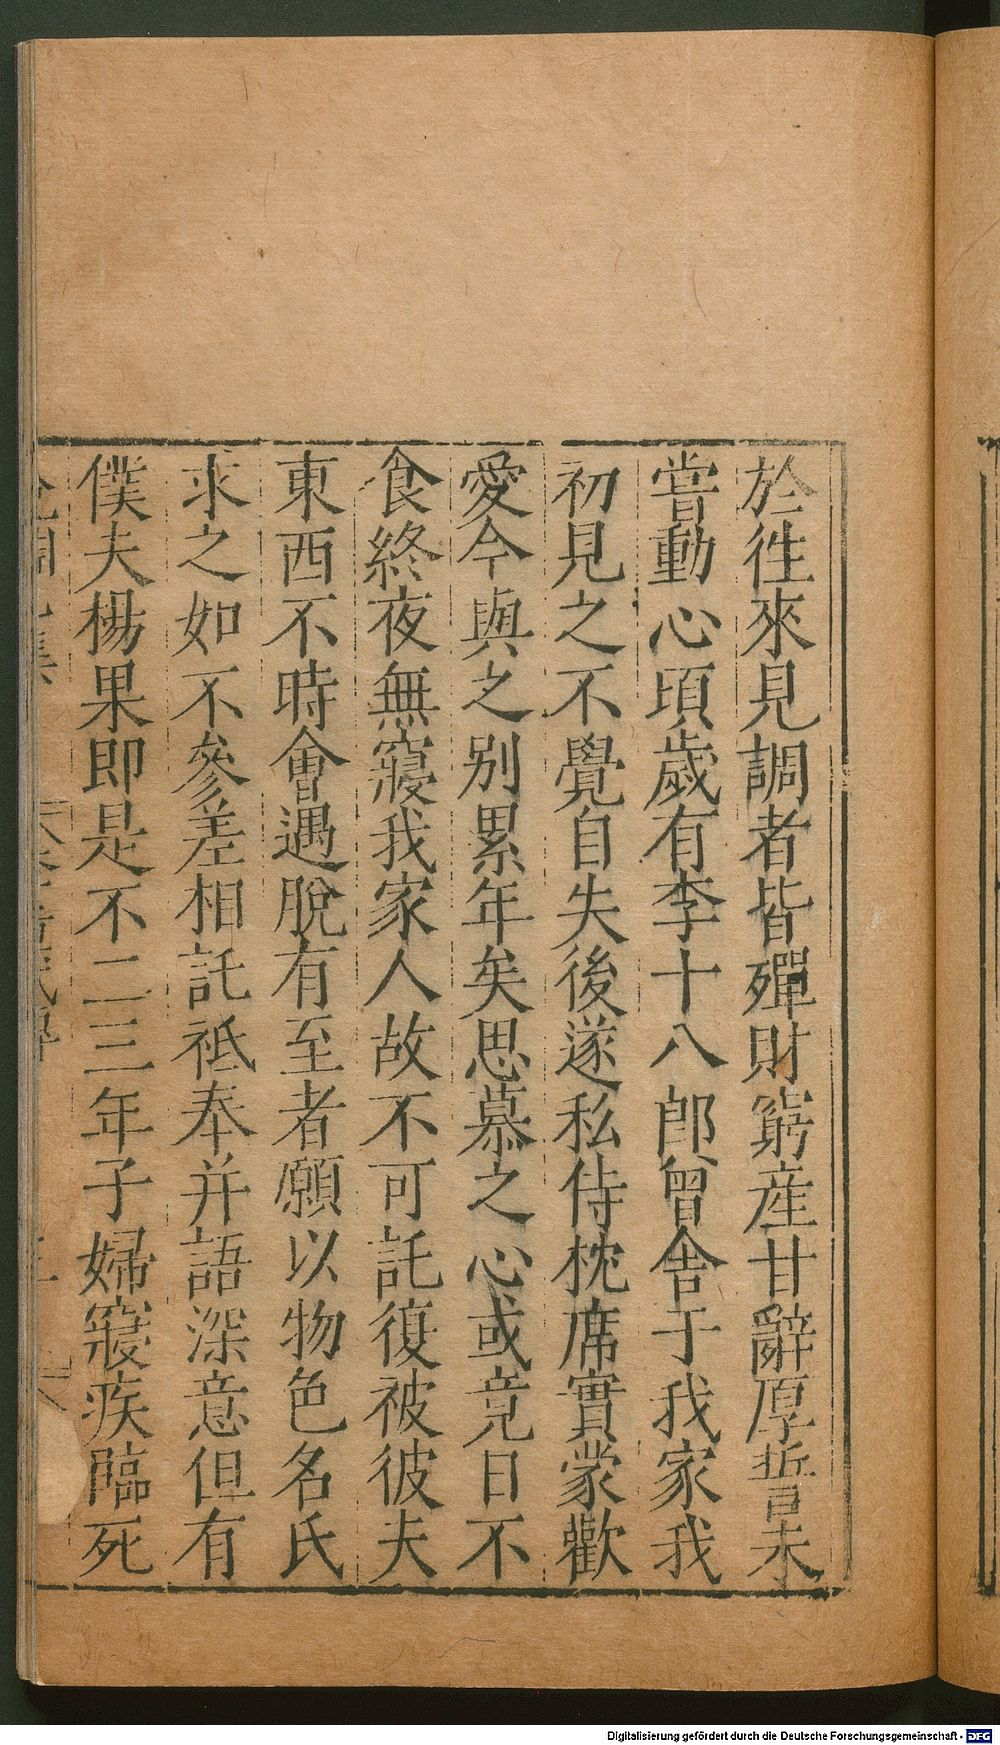 於徃來見調者皆殫財窮産甘辭厚誓未
嘗動心頃歲有李十八郎曾舍于我家我
初見之不覺自失後遂私侍枕席實蒙歡
愛今與之别累年矣思慕之心或竟日不
食終夜無寢我家人故不可託復被彼夫
東西不時會遇脫有至者願以物色名氏
求之如不參差相託祗奉并語深意但有
僕夫楊果即是不二三年子婦寢疾臨死
Digitalisierung gefördert durch die Deutsche Forschungsgemeinschaft - DFG